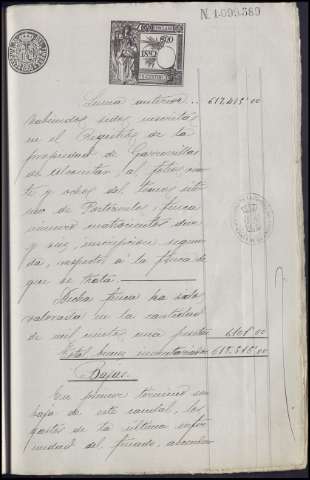 N. 1.099.389
Suma anterior... 617,415'00
habiendo sido inscrita
en el Registro de la
propiedad de Garrovillas
de Alconétar al folio
te y ocho del tomo
mo de Portezuelo, finca
número cuatrocientos
y seis, inscripción segun
da, respecto a la finca de
que se trata
Dicha finca ha sido
valorada en la cantidad
de mil ciento una pesetas
Total bienes inventariados
Bajas.
En primer término son
baja de este caudal, los
gastos de la última enfer
medad del finado,